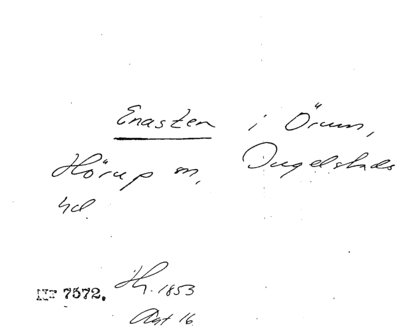 Enasten i Örum,
Hörup m, Ingelstads
hd.
NF 7572. Hg. 1853
Avst 16